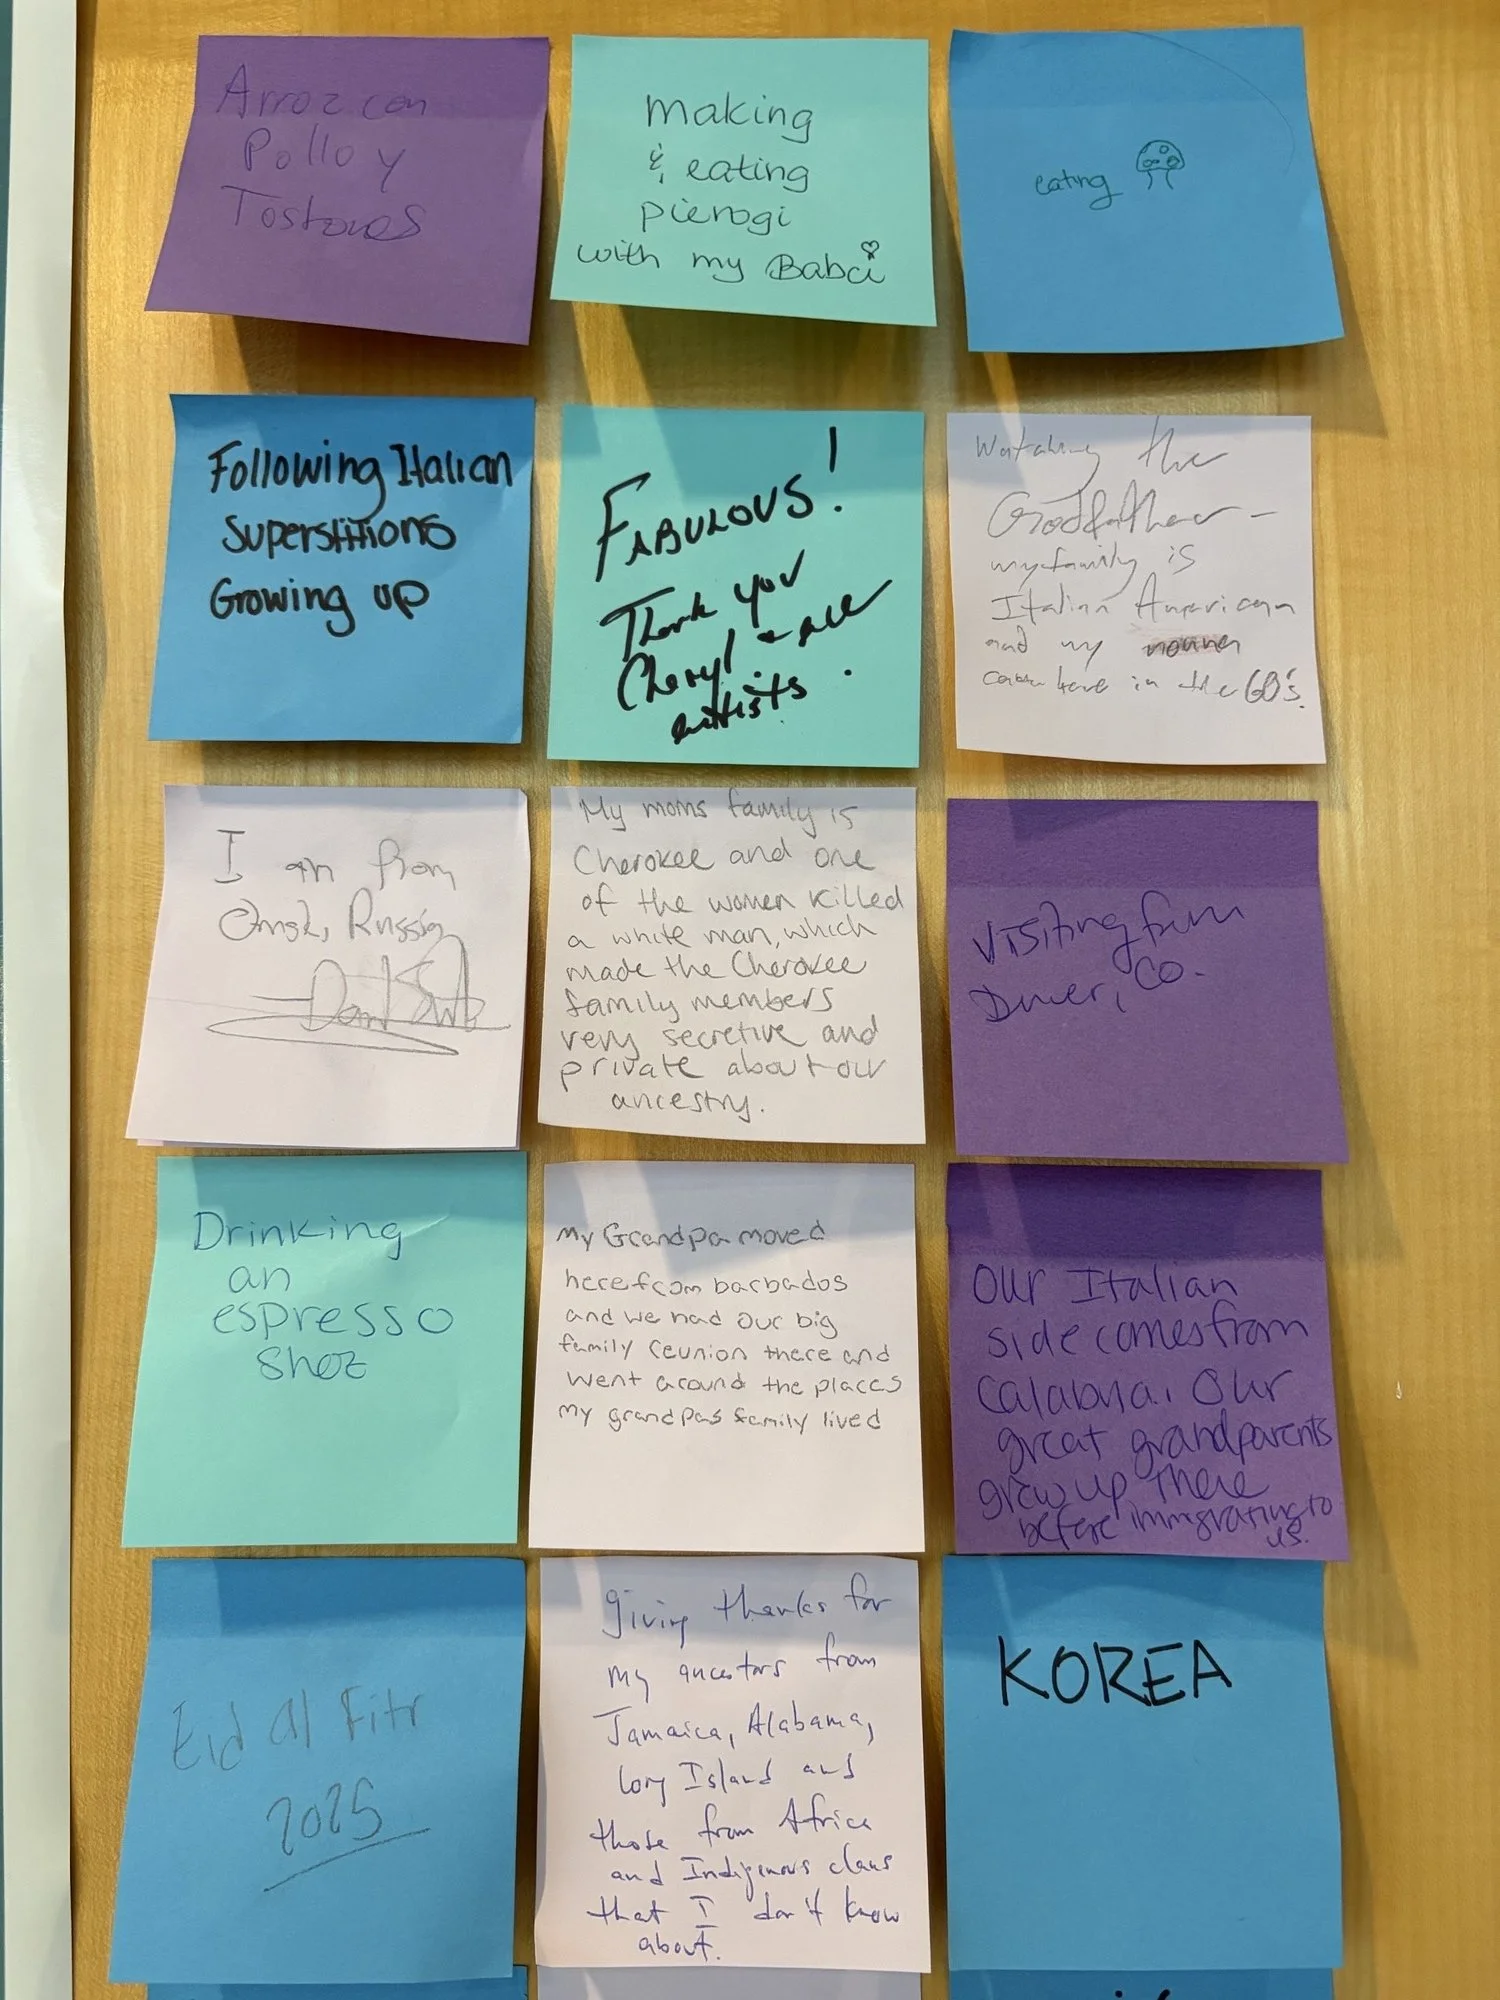 Arroz con
Pollo y
Tostones
making
& eating
pierogi
with my Babci
eating
Following Italian
Superstitions
Growing up
FABULOUS!
Thank you
Cheryl & all
artists.
Watching the
Godfather -
my family is
Italian American
and my
came here in the 60's.
I am from
Omsk, Russia
My moms family is
Cherokee and one
of the women killed
a white man, which
made the Cherokee
family members
very secretive and
private about our
ancestry.
Visiting from
Denver, CO.
Drinking
an
espresso
shot
My Grandpa moved
here from barbados
and we had our big
family reunion there and
went around the places
my grandpas family lived
Our Italian
side comes from
Calabria. Our
great grandparents
grew up there
before immigrating to
US.
Eid al Fitr
2025
giving thanks for
my ancestors from
Jamaica, Alabama,
Long Island and
those from Africa
and Indigenous clans
that I don't know
about.
KOREA